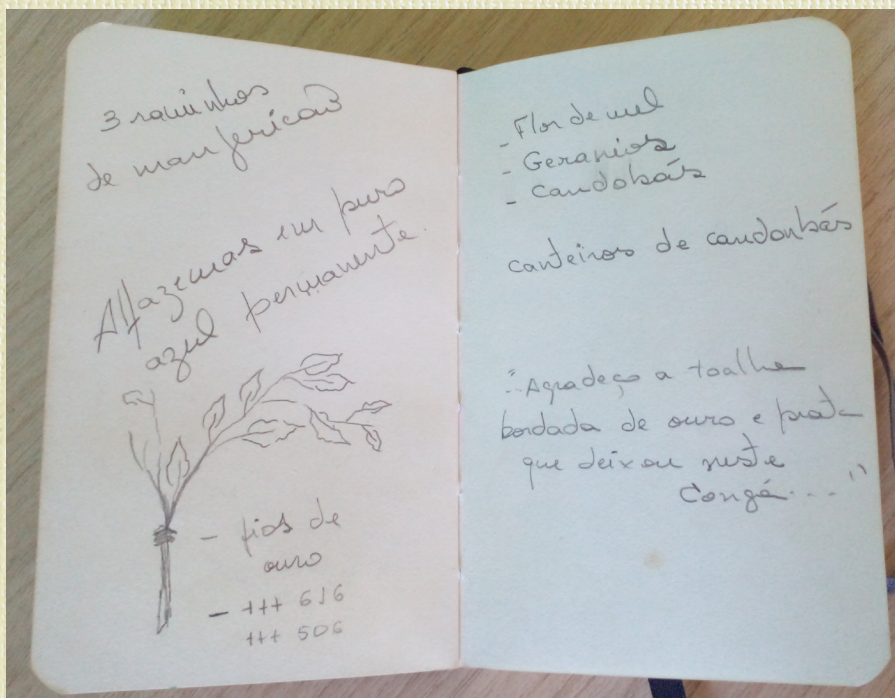 3 raminhos
de manjericão
Alfazemas em puro
azul permanente.
- fios de
ouro
- +++ 616
+++ 506
- Flor de mel
- Geranios
- Candobás
canteiros de candonbás
"Agradeço a toalha
bordada de ouro e prata
que deixou neste
Congá...."